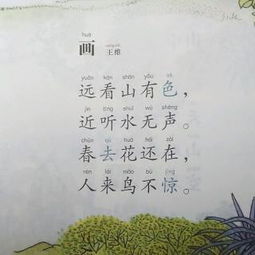 huà
画
wáng wéi
王维
yuǎn kàn shān yǒu sè
远看山有色，
jìn tīng shuǐ wú shēng
近听水无声。
chūn qù huā hái zài
春去花还在，
rén lái niǎo bù jīng
人来鸟不惊。